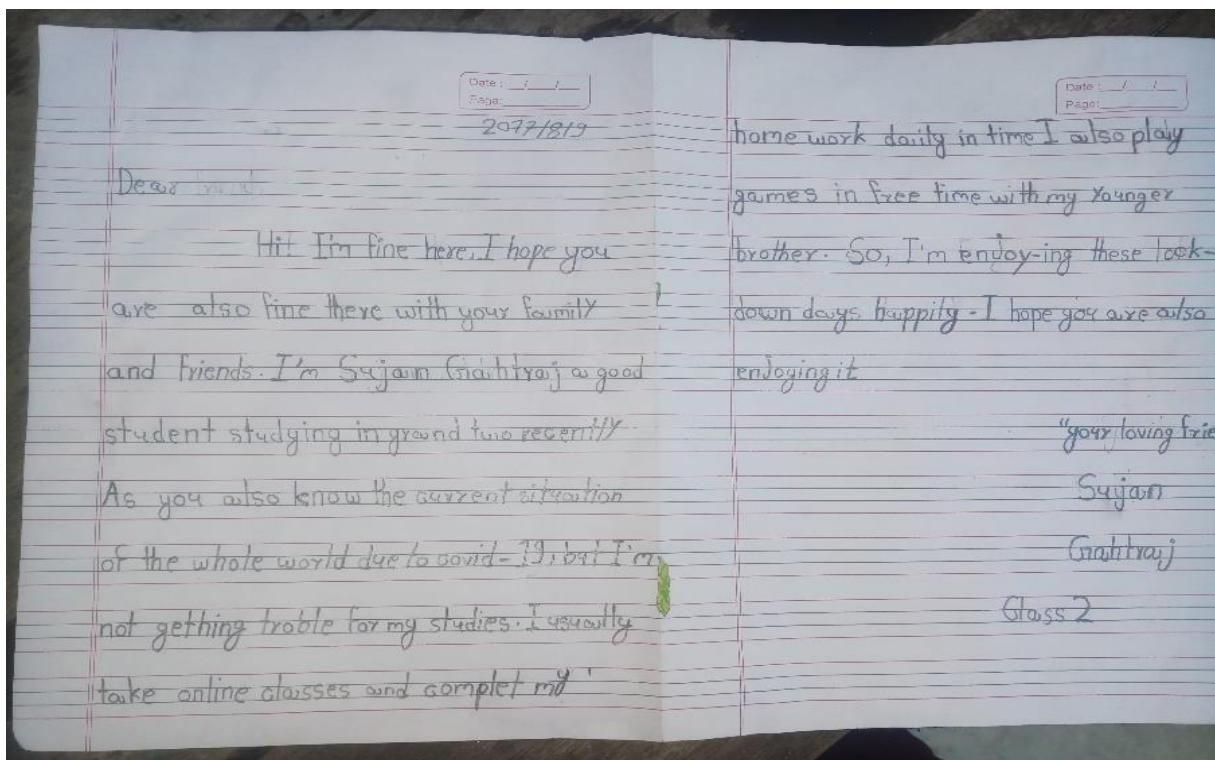 Date: __/__/__
Page:
2077/8/9
Dear
Hi! I'm fine here, I hope you
are also fine there with your family
and friends. I'm Sujan Gahtraj a good
student studying in graand two recently
As you also know the current situation
of the whole world due to covid-19, but I'm
not gething troble for my studies. I usually
take online classes and complet my
Date: __/__/__
Page:
home work daily in time I also play
games in free time with my younger
brother. So, I'm enjoy-ing these lock-
down days happily - I hope you are also
enjoying it
"your loving frie
Sujan
Gahtraj
Class 2